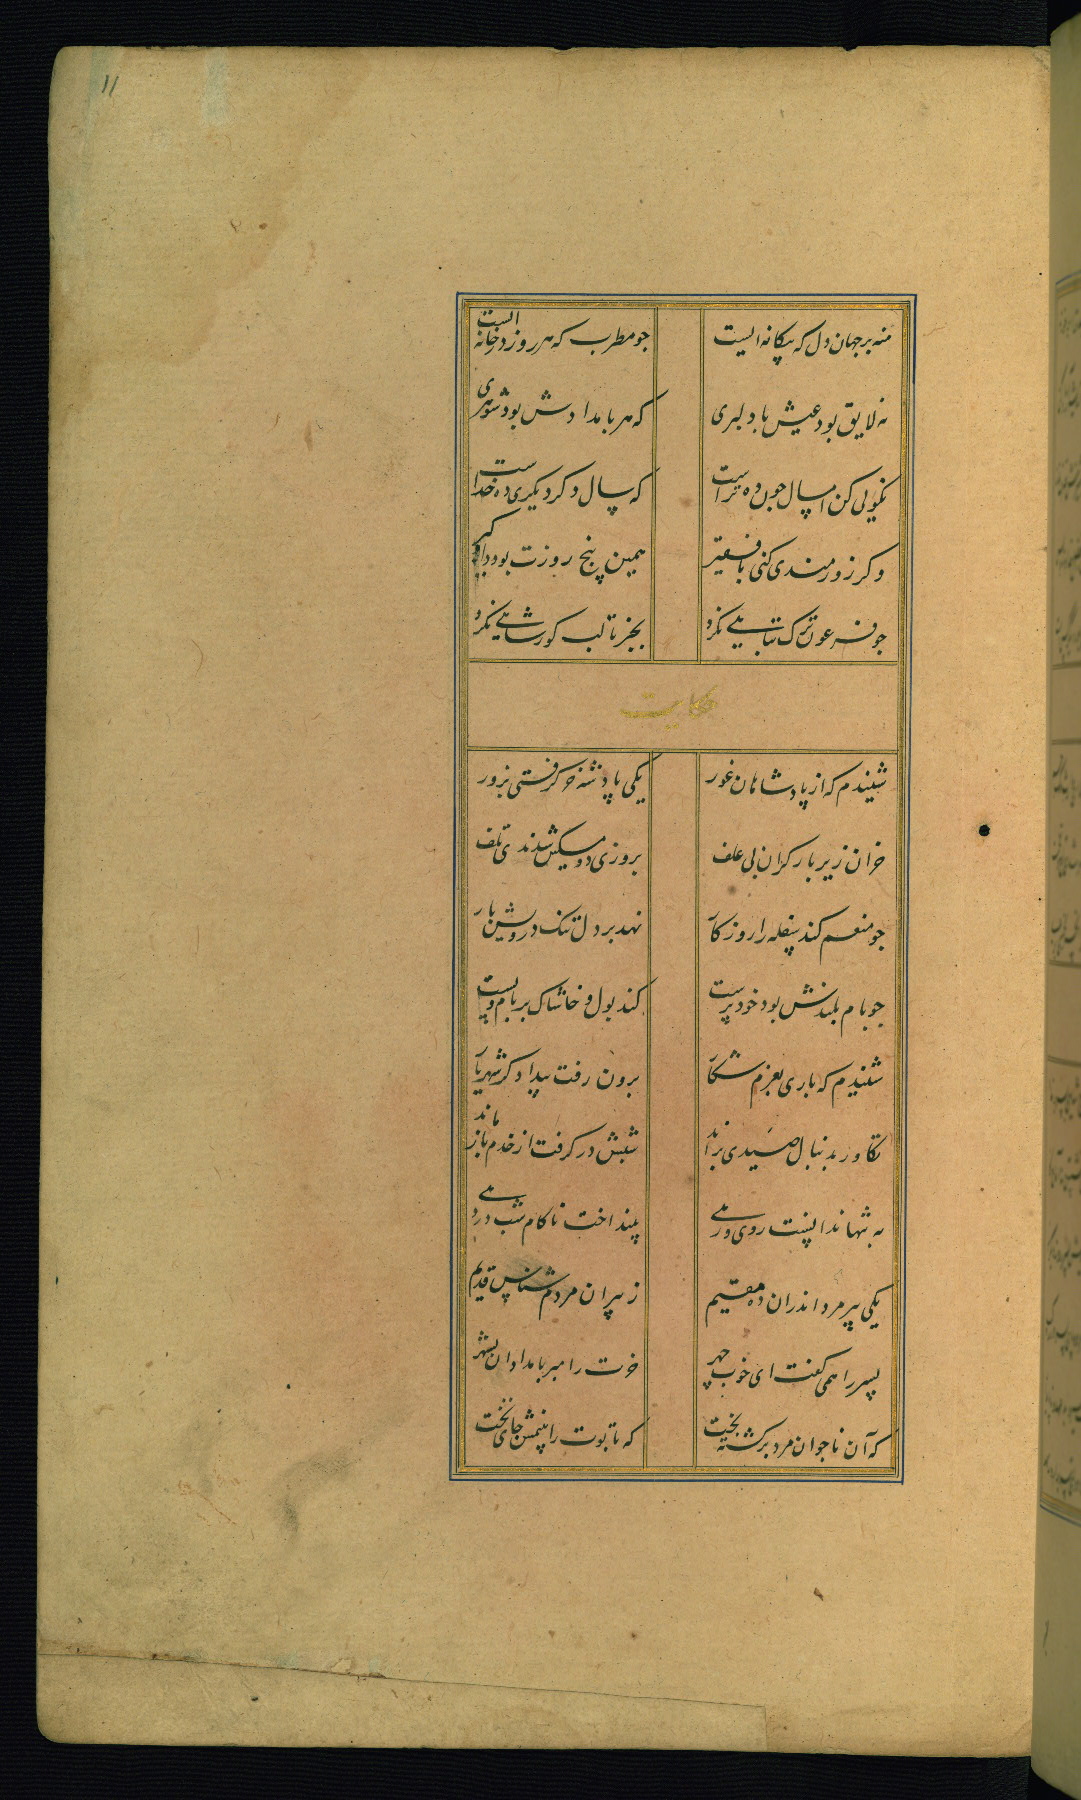 11
منه بر جهان دل که بیکانه ایست جو مطرب که هر روز در خانه ایست
نه لایق بود عیش با دلبری که هر بامدادش بود شوهری
نکویی کن امسال جون ده تراست که سال دکر دیکری ده خداست
وکر زورمندی کنی با فقیر همین پنج روزت بود دار و کیر
جو فرعون ترک تباهی نکرد بجز تا لب کور شاهی نکرد
حکایت
شنیدم که از پادشاهان غور یکی پادشه خر کرفتی بزور
خران زیر بار کران بی علف بروزی دو مسکین شدندی تلف
جو منعم کند سفله را روزکار نهد بر دل تنک درویش بار
جو بام بلندش بود خودپرست کند بول و خاشاک بر بام پست
شنیدم که باری بعزم شکار برون رفت بیدادکر شهریار
تکاور بدنبال صیدی براند شبش در کرفت از خدم باز ماند
به تنها ندانست روی و رهی بینداخت ناکام شب در دهی
یکی پیر مرد اندران ده مقیم ز پیران مردم شناس قدیم
پسر را همی کفت ای خوب جهر خرت را مبر بامدادان بشهر
که آن ناجوان مرد برکشته بخت که تابوت را بینمش جای تخت